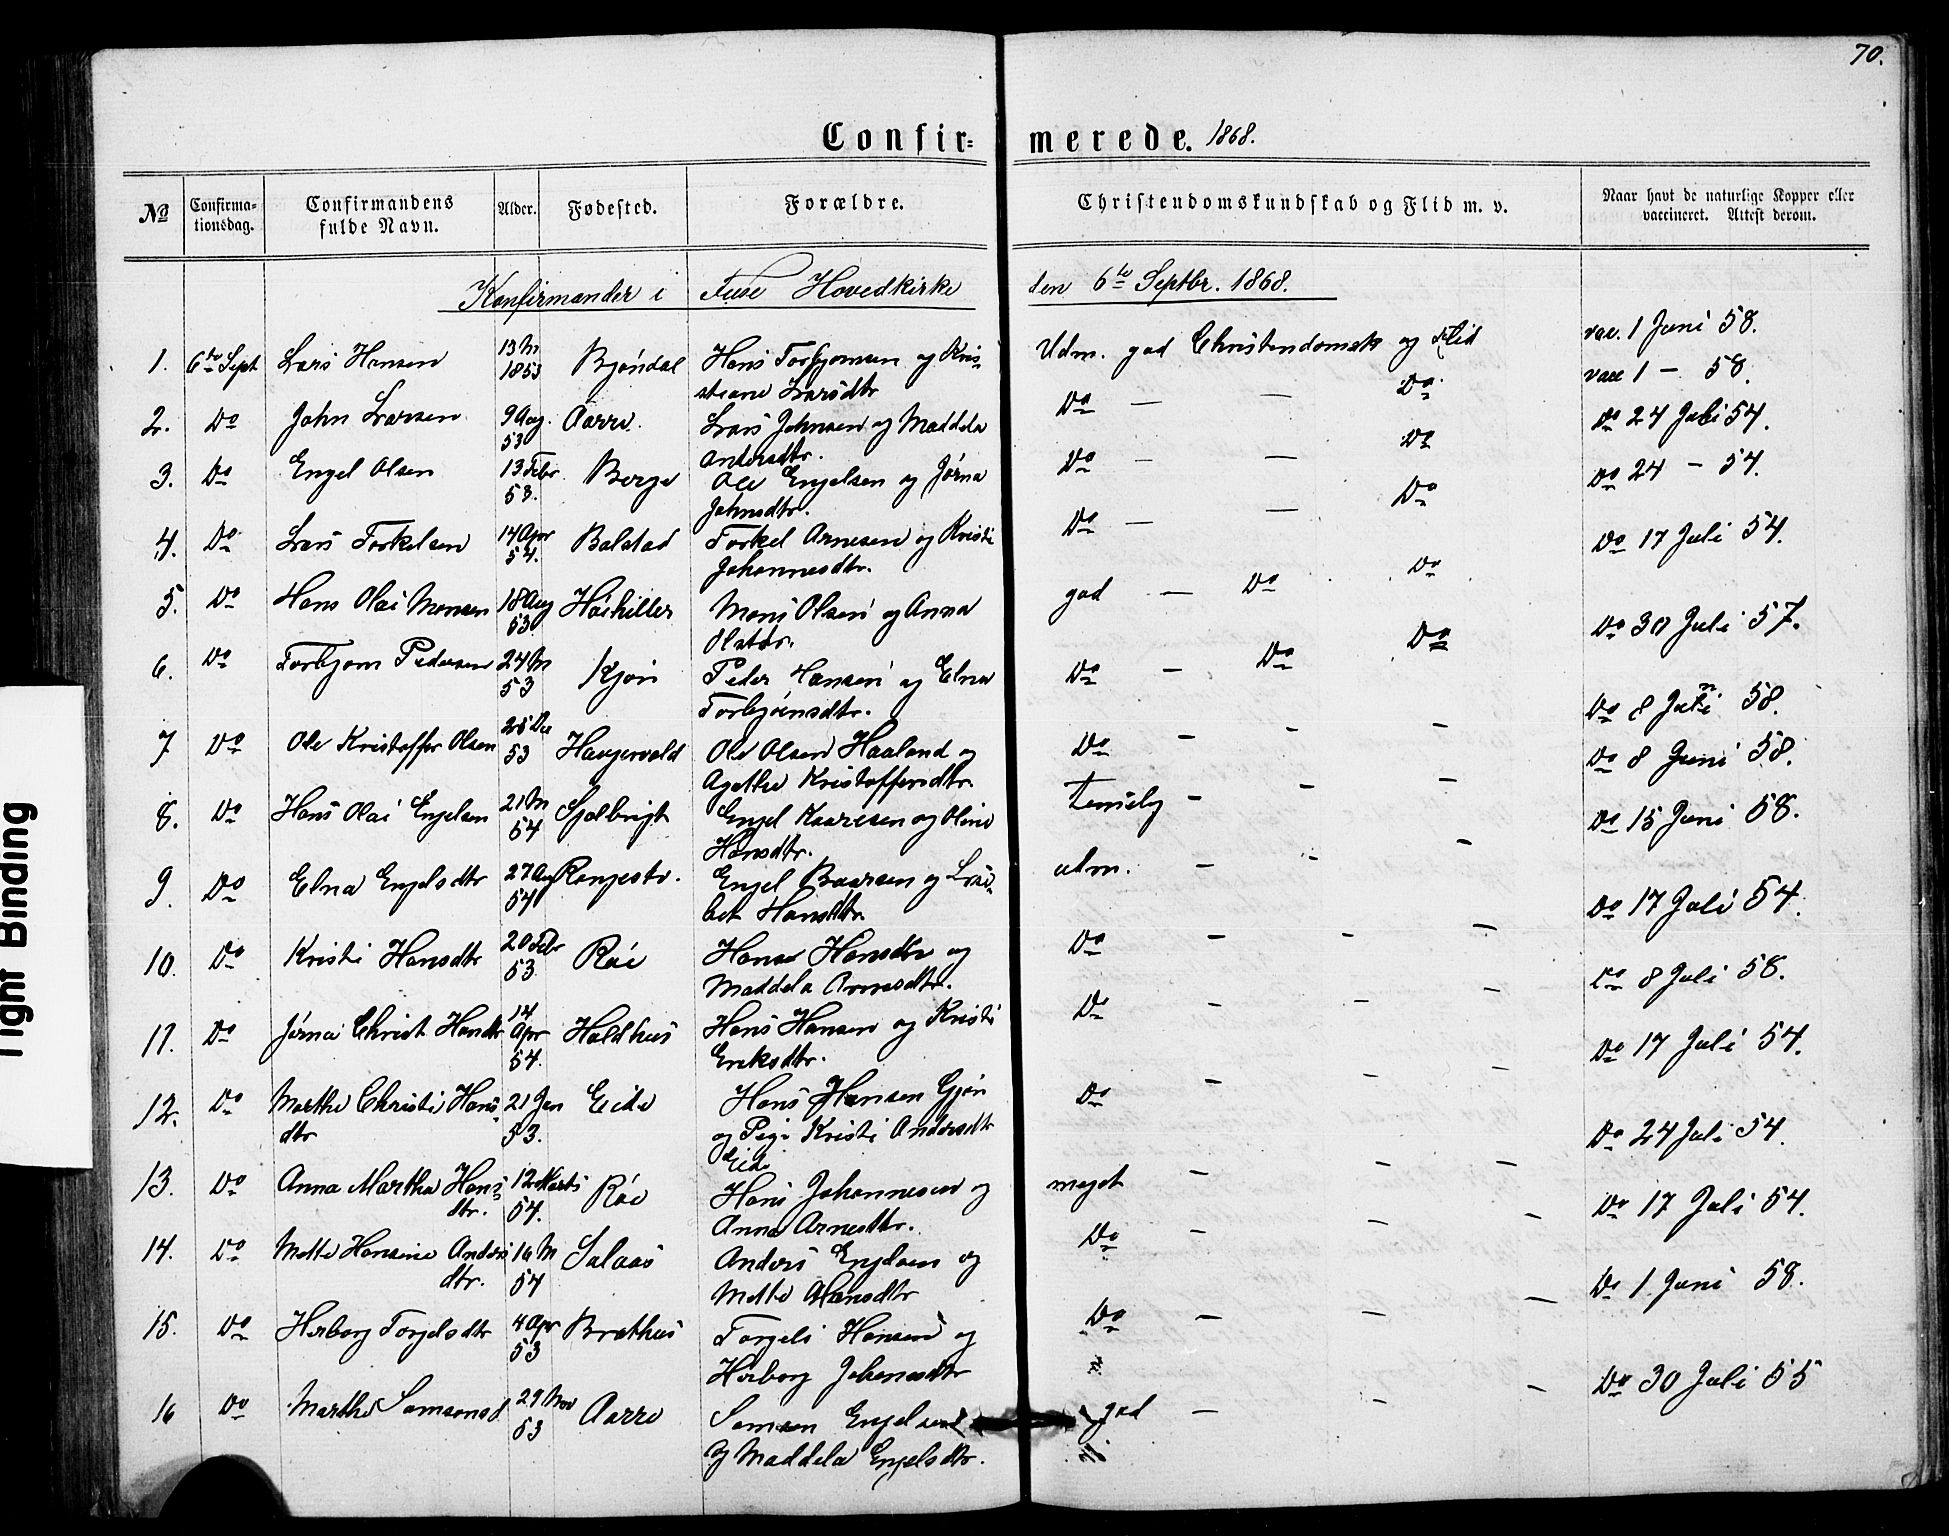 70.
Confir= merede. 1868.
No Confirma-tionsdag. Confirmandens fulde Navn. Alder. Fødested. Forældre. Christendomskundskab og Flid m. v. Naar havt de naturlige Kopper eller vaccineret. Attest derom.
Konfirmander i Fuse Hovedkirke den 6te Septbr. 1868.
1. 6te Sept Lars Hansen 13 M 1853 Bjøndal Hans Torbjørnsen og Kris- Udm. god Christendomsk og Flid vac. 1 Juni 58.
stiane Larsdtr vacc 1 — 58.
2. Do John Larsen 9 Aug. 53 Aarre. Lars Johnsen og Maddela Do — — Do Do 24 Juli 54.
Andersdtr.
3. Do Engel Olsen 13 Febr 53. Berge Ole Engelsen og Jørna Do — — Do Do 24 — 54.
Johnsdtr.
4. Do Lars Torkelsen 14 Apr 54. Bolstad Torkel Arnesen og Kristi Do — — Do Do 17 Juli 54.
Johannesdtr.
5. Do Hans Olai Monsen 18 Aug 53. Mons Olsen og Anna god — Do Do Do 30 Juli 57.
Olsdtr.
6. Do Torbjørn Pedersen 24 M 53 Peder Hansen og Elna Do — Do Do Do 8 Juni 58.
Torbjørnsdtr.
7 Do Ole Kristoffer Olsen 53 Havgervold Ole Olsen Haaland og Do — — — Do 8 Juni 58.
Agethe Kristoffersdtr
8. Do Hans Olai Engelsen 21 M 54 Engel Kaaresen og Oline temelig — — — Do 15 Juni 58.
Hansdtr.
9. Do Elna Engelsdtr 27 Aug 54 Engel Baarsen og udm. — — — Do 17 Juli 54.
Hansdtr
10. Do Kristi Hansdtr 20 Febr 53 Røe Hans Hansen og Do — — — Do 8 Juli 58.
Maddela Arnesdtr.
11. Do Jørna Christ Hansdtr 14 Apr 54. Holdhus Hans Hansen og Kristi Do — — — Do 17 Juli 54.
Eriksdtr.
12. Do Marthe Christi Hans- 21 Jan 53. Eide Hans Hansen Gjøn Do — — Do 24 Juli 54.
dtr og Pige Kristi Andersdtr
Eide
13. Do Anna Martha Hans- 12 Marts 54. Røe Hans Johannesen og meget — — — Do 17 Juli 54.
dtr. Anna Arnesdtr.
14. Do Mette Hansine Anders 16 M 54 Anders Engelsen og Do — — — Do 1 Juni 58.
dtr. Mette Hansdtr
15. Do Herborg Torgelsdtr 4 Apr 53 Brathus Torgels Hansen og Do — — —
Herborg Johanesdtr
16 Do Marthe Samsonsd 29 Nov 53 Aarre Samson Engelsen god — — — Do 30 Juli 55
og Maddela Engelsdtr.
Tight Binding